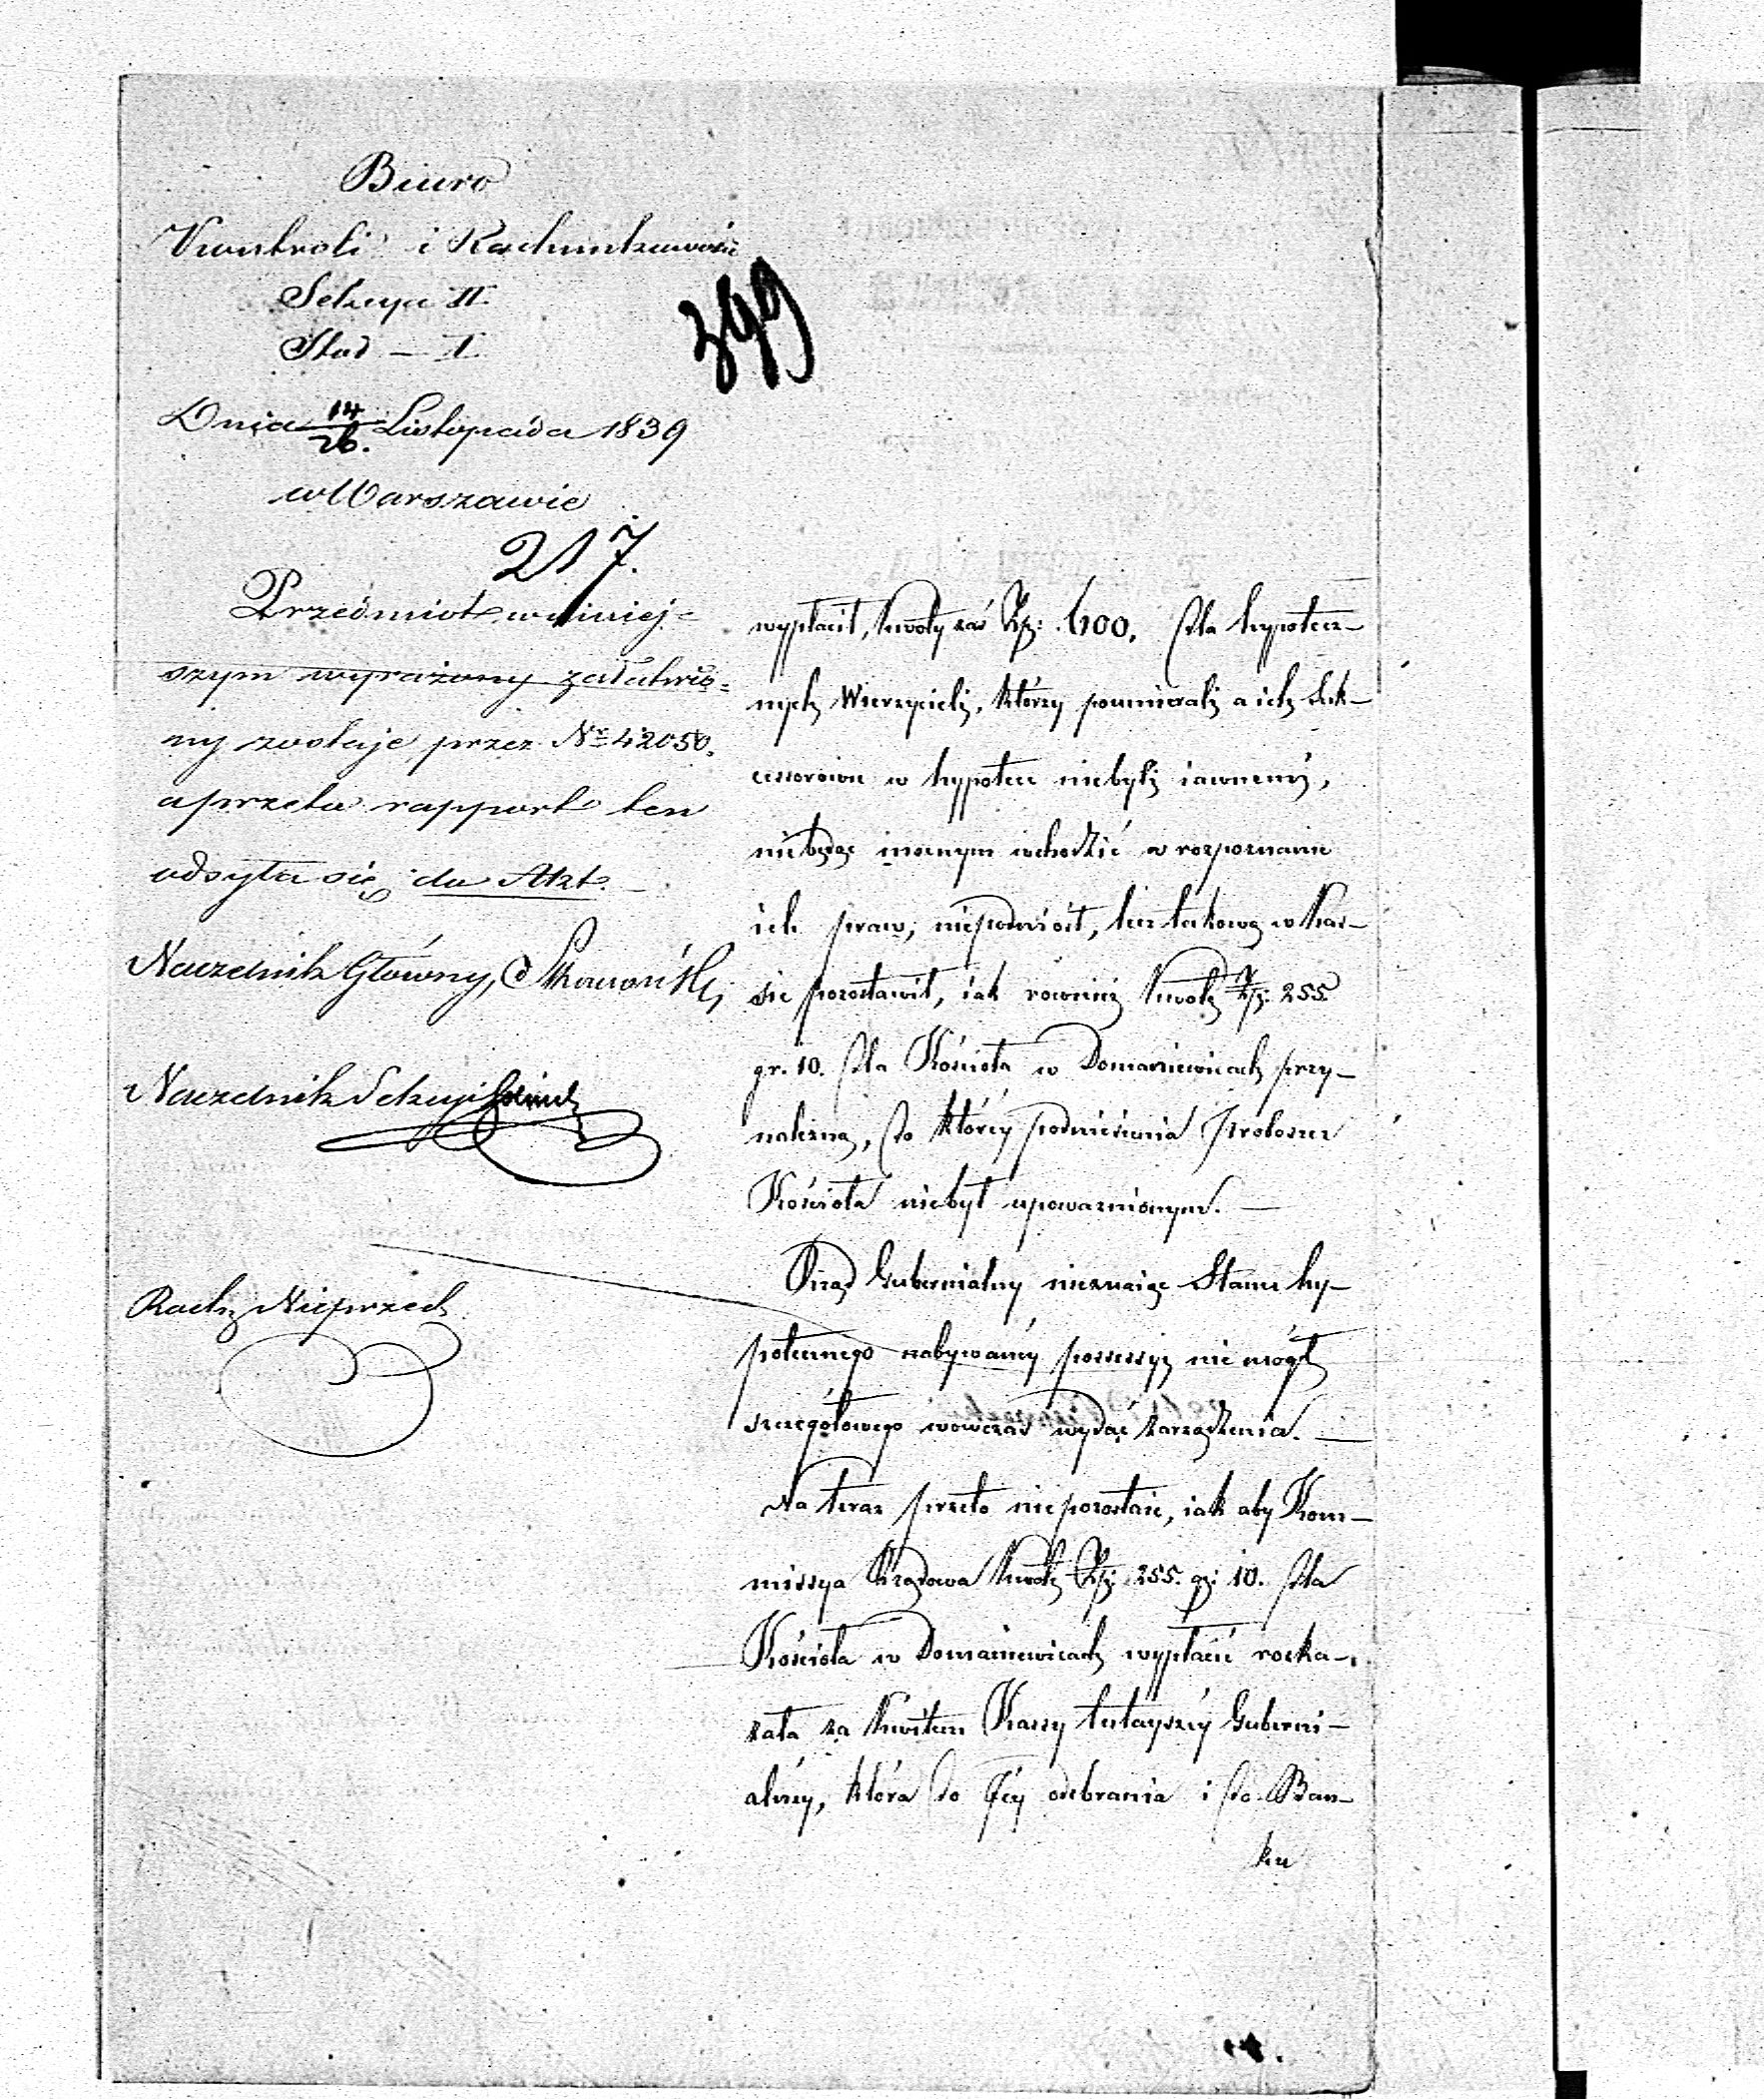 Biuro
Kontroli i Rachunkowości
Sekcya II
Stoł — I.
399
Dnia 14/26. Listopada 1839
w Warszawie
217.
Przedmiot w niniej=
szym wyrażony załatwio=
ny zostaje przez Nr 42050.
a przeto rapport ten
odsyła się do Akt. —
Naczelnik Główny,
Naczelnik Sekcyi
Rach:
wypłacił, kwoty zaś Zp: 600, dla hypotecz—
nych Wierzycieli, którzy poumierali a ich Suk—
cessorowie w hypotece niebyli iawnemi,
niebędąc mocnym wchodzić w rozpoznanie
ich praw, niepodniósł, lecz takową w Kas—
sie pozostawił, iak rownież kwotę Zp: 255
gr. 10. dla Kościoła w Domaniewicach przy—
należną, do którey podniesienia Proboszcz
Kościoła niebył upoważnionym. —
Rząd Gubernialny nieznaiąc Stanu hy—
potecznego nabywaney possessyi nie mógł
szczegółowego wowczas wydać zarządzenia. —
Na teraz przeto niepozostaie, iak aby Kom—
missya Rządowa kwotę Zp: 255. gr: 10. dla
Kościoła w Domaniewicach wypłacić rozka—
zała za kwitem Kassy tutayszey Guberni—
alney, która do Jey odebrania i do Ban—
ku